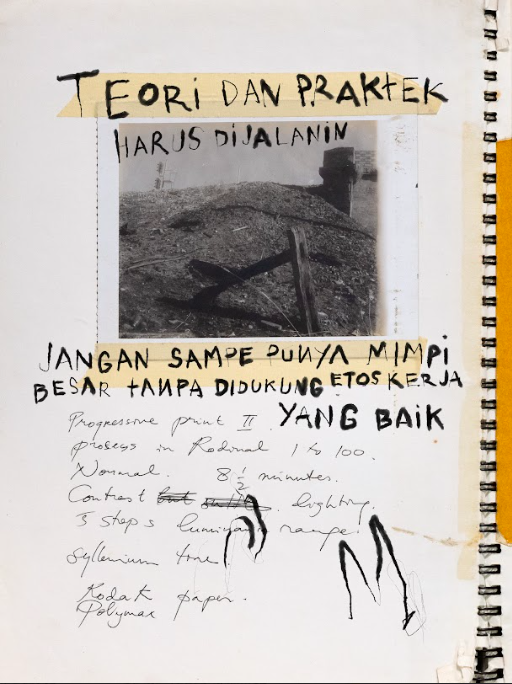 TEORI DAN PRAKTEK
HARUS DIJALANIN
JANGAN SAMPE PUNYA MIMPI
BESAR TANPA DIDUKUNG ETOS KERJA
YANG BAIK
Progressive print II
process in Rodinal 1 to 100.
Normal. 8 1/2 minutes.
Contrast but lighting.
3 steps luminance range.
tone
Kodak paper.
Polymax